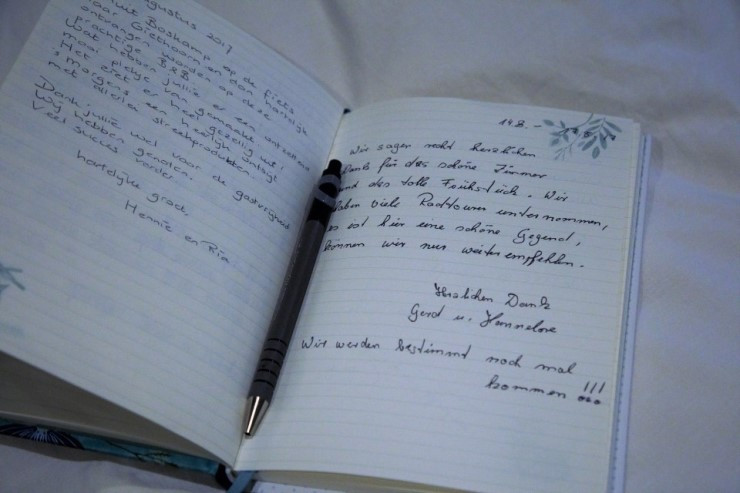 gustus 2017
Boskamp op de fiets
naar Giethoorn en dan hartelijk
ontvangen worden op deze
prachtige B&B!
Wat hebben jullie er een
mooi plekje van gemaakt
Het ziet er heel gezellig uit!
's Morgens een heerlijk ontbijt
met allerlei streekproducten.
Dank jullie wel voor de gastvrijheid
Wij hebben genoten.
Veel succes verder
hartelijke groet,
Hennie en Ria
14.8.-
Wir sagen recht herzlichen
Dank für das schöne Zimmer
und das tolle Frühstück. Wir
haben viele Radtouren unternommen,
es ist hier eine schöne Gegend,
können wir nur weiterempfehlen.
Herzlichen Dank
Gerd u. Hannelore
Wir werden bestimmt noch mal
kommen!!!